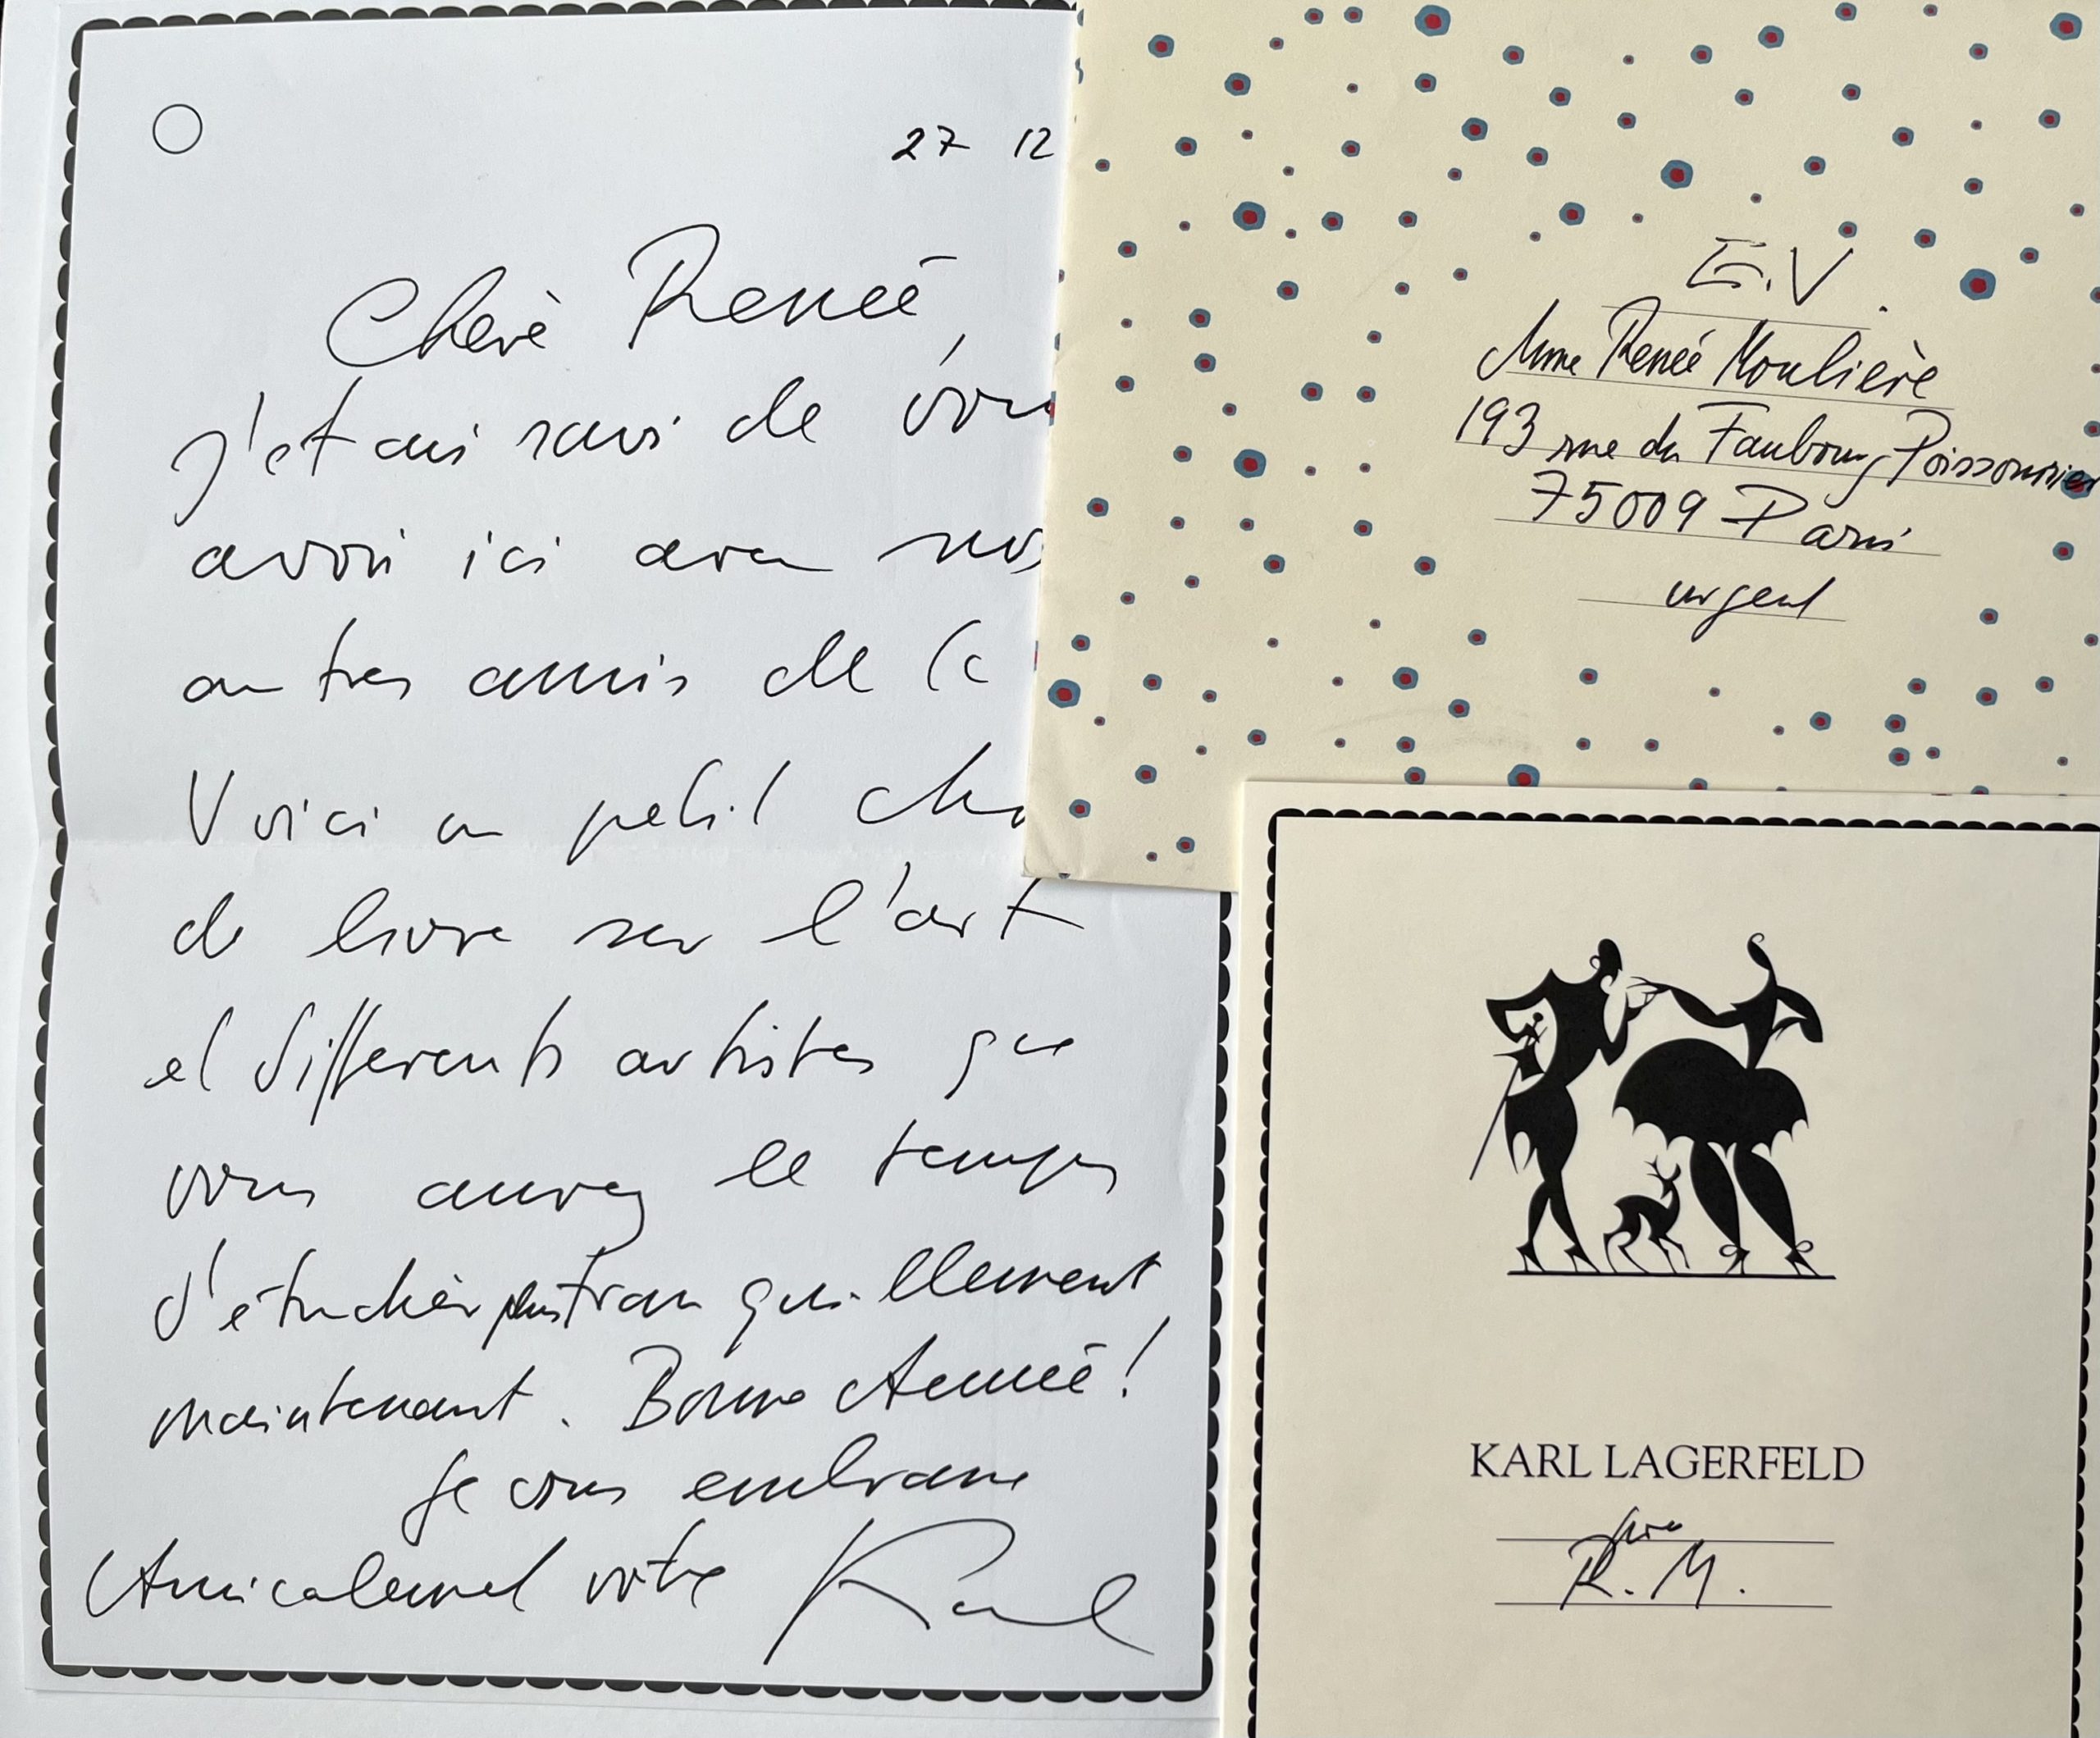 27 12
Chère Renée,
j'etais ravi de vous
avoir ici avec nos
autres amis de la
Voici un petit cho
de livre sur l'art
et differents artistes que
vous aurez le temps
d'étudier plus tranquillement
maintenant. Bonne Année!
Je vous embrasse
Amicalement votre Karl
E.V.
Mme Renée Moulière
193 rue du Faubourg Poissonnier
75009 Paris
urgent
KARL LAGERFELD
pour
R. M.